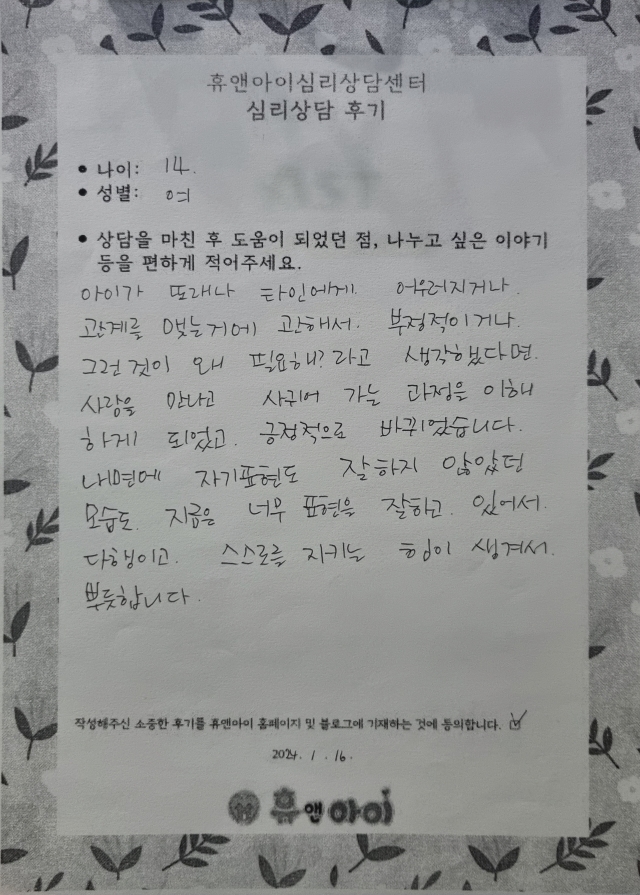 휴앤아이심리상담센터
심리상담 후기
• 나이: 14.
• 성별: 여
• 상담을 마친 후 도움이 되었던 점, 나누고 싶은 이야기
등을 편하게 적어주세요.
아이가 또래나 타인에게 어우러지거나.
관계를 맺는거에 관해서. 부정적이거나.
그런것이 왜 필요해? 라고 생각했다면.
사람을 만나고 사귀어 가는 과정을 이해
하게 되었고. 긍정적으로 바뀌었습니다.
내면에 자기표현도 잘하지 않았던
모습도. 지금은 너무 표현을 잘하고. 있어서.
다행이고. 스스로를 지키는 힘이 생겨서.
뿌듯합니다.
작성해주신 소중한 후기를 휴앤아이 홈페이지 및 블로그에 기재하는 것에 동의합니다.
2024. 1. 16.
휴앤아이